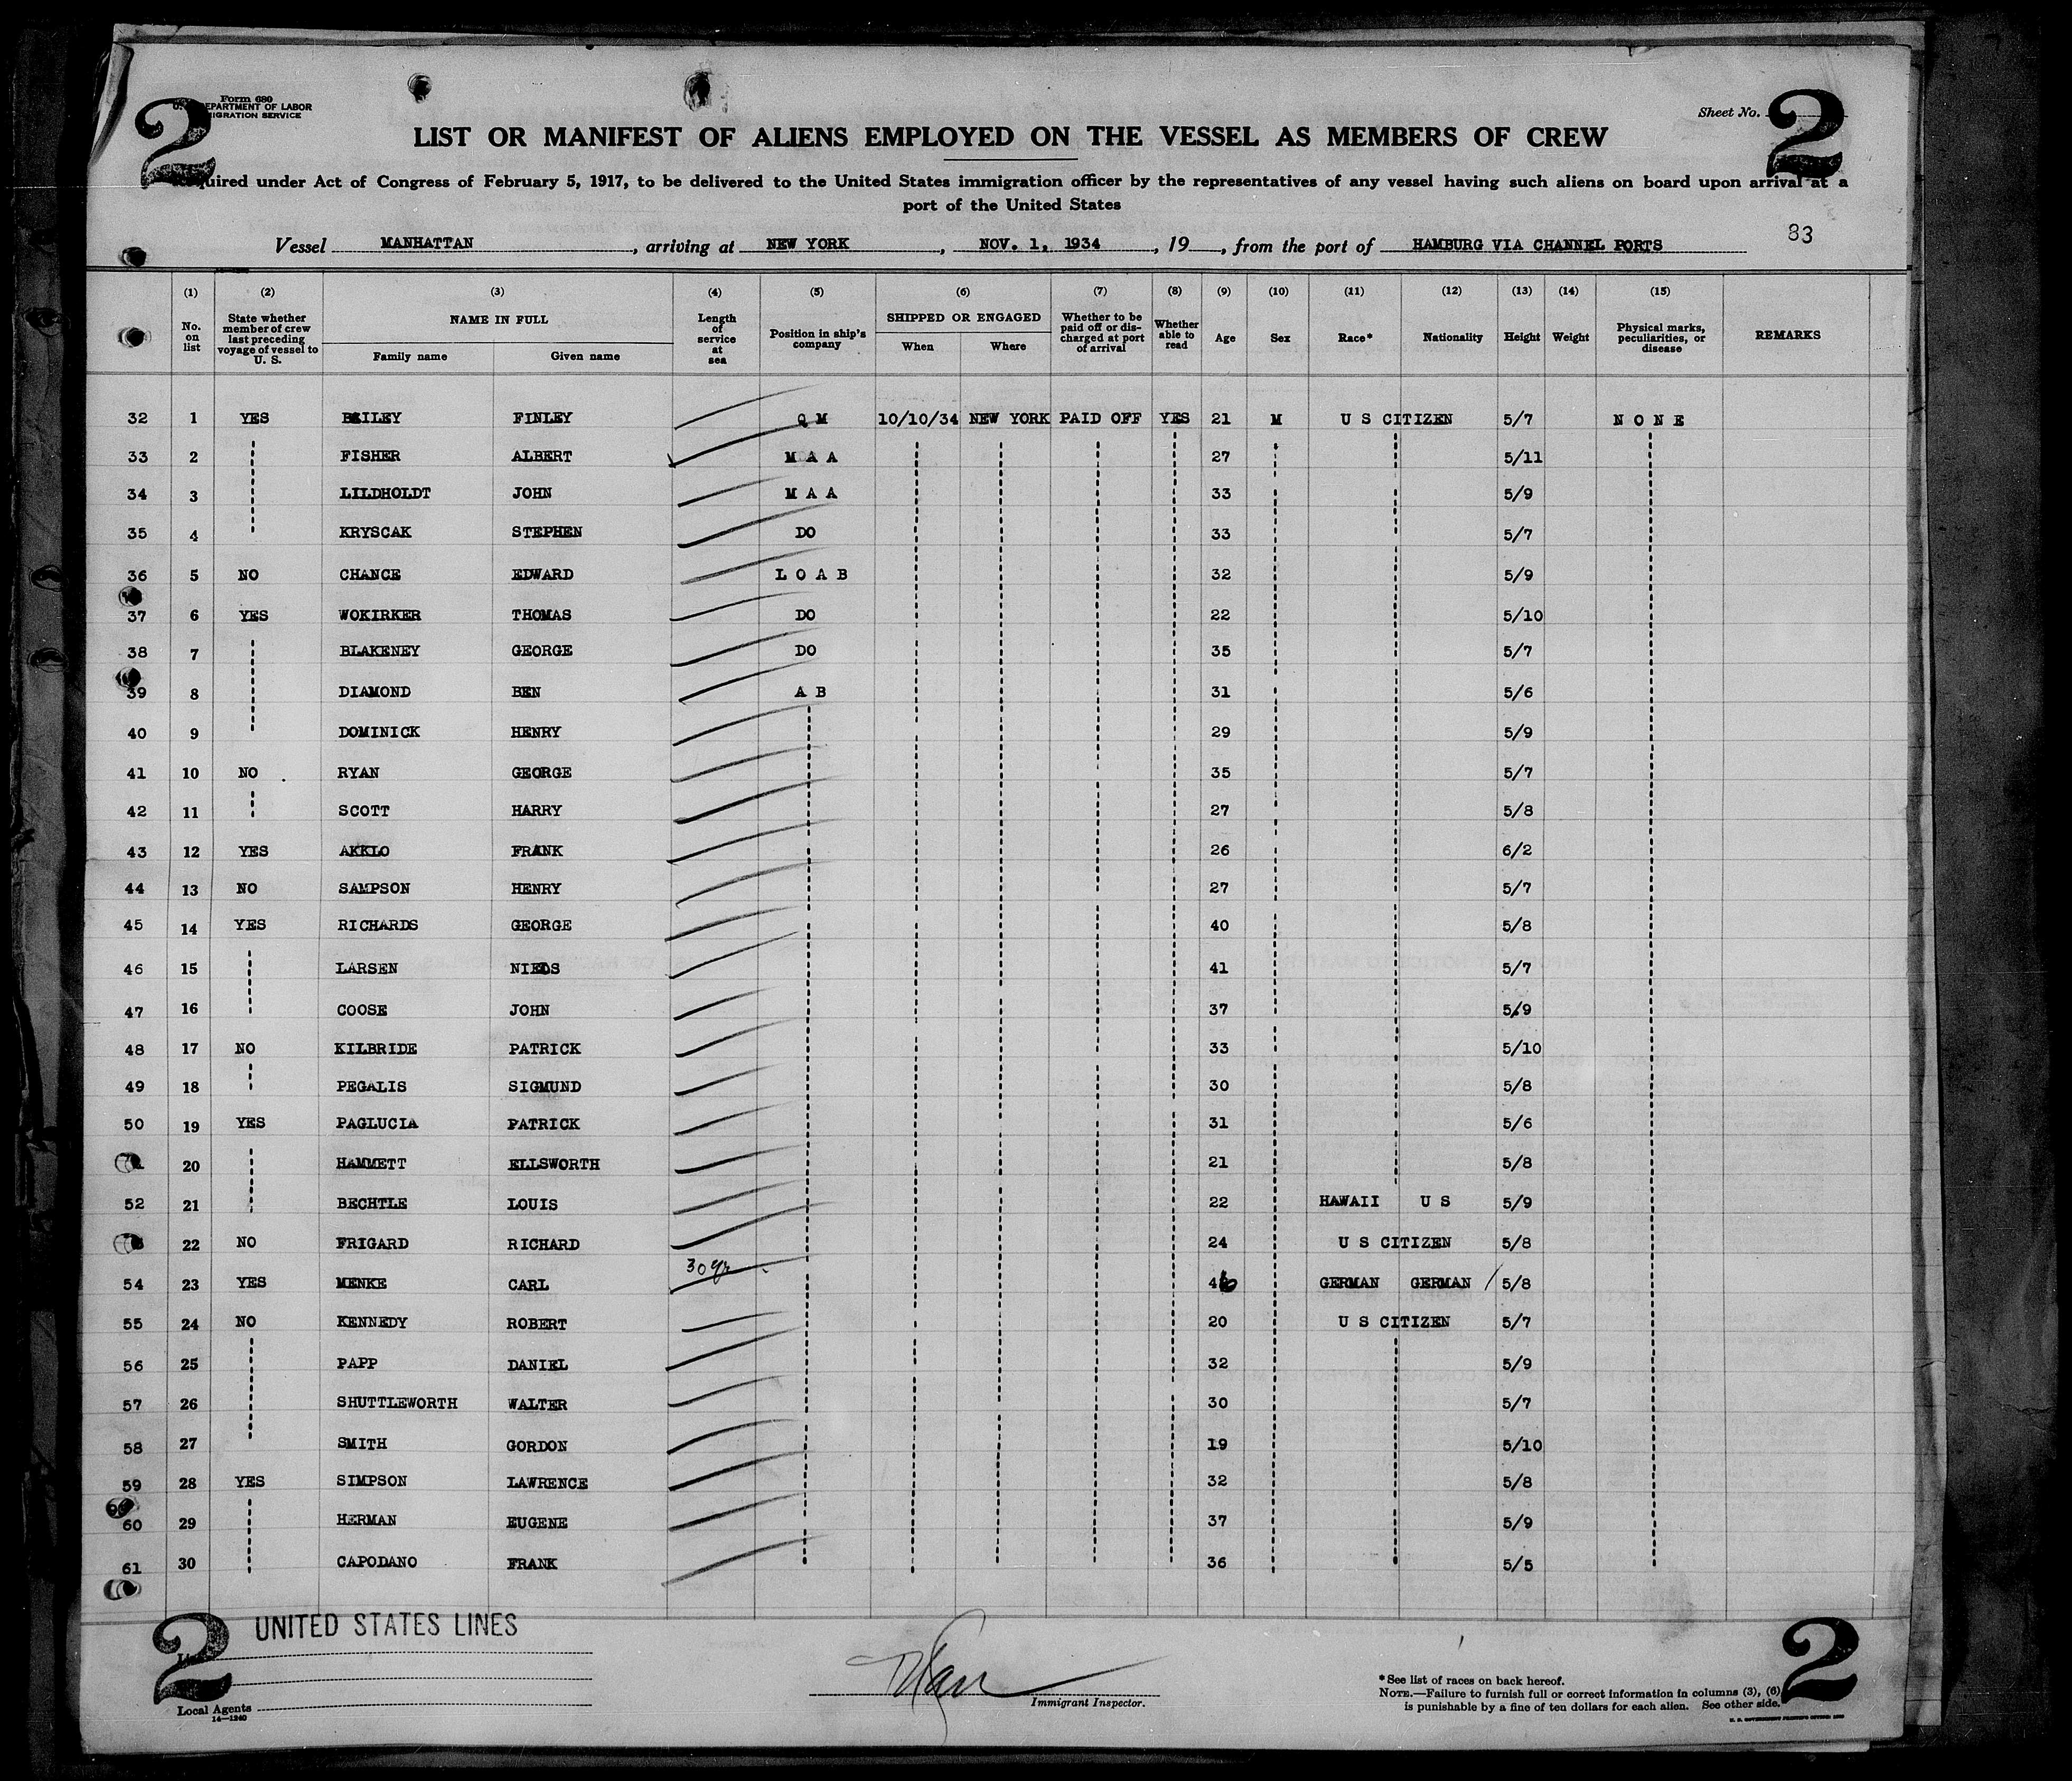 Form 680
U. DEPARTMENT OF LABOR
MIGRATION SERVICE
2
Sheet No. 2
LIST OR MANIFEST OF ALIENS EMPLOYED ON THE VESSEL AS MEMBERS OF CREW
quired under Act of Congress of February 5, 1917, to be delivered to the United States immigration officer by the representatives of any vessel having such aliens on board upon arrival at a
port of the United States
83
Vessel MANHATTAN, arriving at NEW YORK, NOV. 1, 1934, 19 , from the port of HAMBURG VIA CHANNEL PORTS
(1) (2) (3) (4) (5) (6) (7) (8) (9) (10) (11) (12) (13) (14) (15)
No. on list
State whether member of crew last preceding voyage of vessel to U. S.
NAME IN FULL
Family name Given name
Length of service at sea
Position in ship's company
SHIPPED OR ENGAGED
When Where
Whether to be paid off or discharged at port of arrival
Whether able to read
Age Sex Race* Nationality Height Weight
Physical marks, peculiarities, or disease
REMARKS
32 1 YES BAILEY FINLEY Q M 10/10/34 NEW YORK PAID OFF YES 21 M U S CITIZEN 5/7 N O N E
33 2 FISHER ALBERT M A A 27 5/11
34 3 LILDHOLDT JOHN M A A 33 5/9
35 4 KRYSCAK STEPHEN DO 33 5/7
36 5 NO CHANCE EDWARD L O A B 32 5/9
37 6 YES WOKIRKER THOMAS DO 22 5/10
38 7 BLAKENEY GEORGE DO 35 5/7
39 8 DIAMOND BEN A B 31 5/6
40 9 DOMINICK HENRY 29 5/9
41 10 NO RYAN GEORGE 35 5/7
42 11 SCOTT HARRY 27 5/8
43 12 YES AKKLO FRANK 26 6/2
44 13 NO SAMPSON HENRY 27 5/7
45 14 YES RICHARDS GEORGE 40 5/8
46 15 LARSEN 41 5/7
47 16 COOSE JOHN 37 5/9
48 17 NO KILBRIDE PATRICK 33 5/10
49 18 PEGALIS SIGMUND 30 5/8
50 19 YES PAGLUCIA PATRICK 31 5/6
20 HAMMETT ELLSWORTH 21 5/8
52 21 BECHTLE LOUIS 22 HAWAII U S 5/9
22 NO FRIGARD RICHARD 24 U S CITIZEN 5/8
54 23 YES MENKE CARL 30 yr 46 GERMAN GERMAN / 5/8
55 24 NO KENNEDY ROBERT 20 U S CITIZEN 5/7
56 25 PAPP DANIEL 32 5/9
57 26 SHUTTLEWORTH WALTER 30 5/7
58 27 SMITH GORDON 19 5/10
59 28 YES SIMPSON LAWRENCE 32 5/8
60 29 HERMAN EUGENE 37 5/9
61 30 CAPODANO FRANK 36 5/5
2 UNITED STATES LINES
Local Agents
14—1240
Immigrant Inspector.
*See list of races on back hereof.
NOTE.—Failure to furnish full or correct information in columns (3), (6)
is punishable by a fine of ten dollars for each alien. See other side.
2